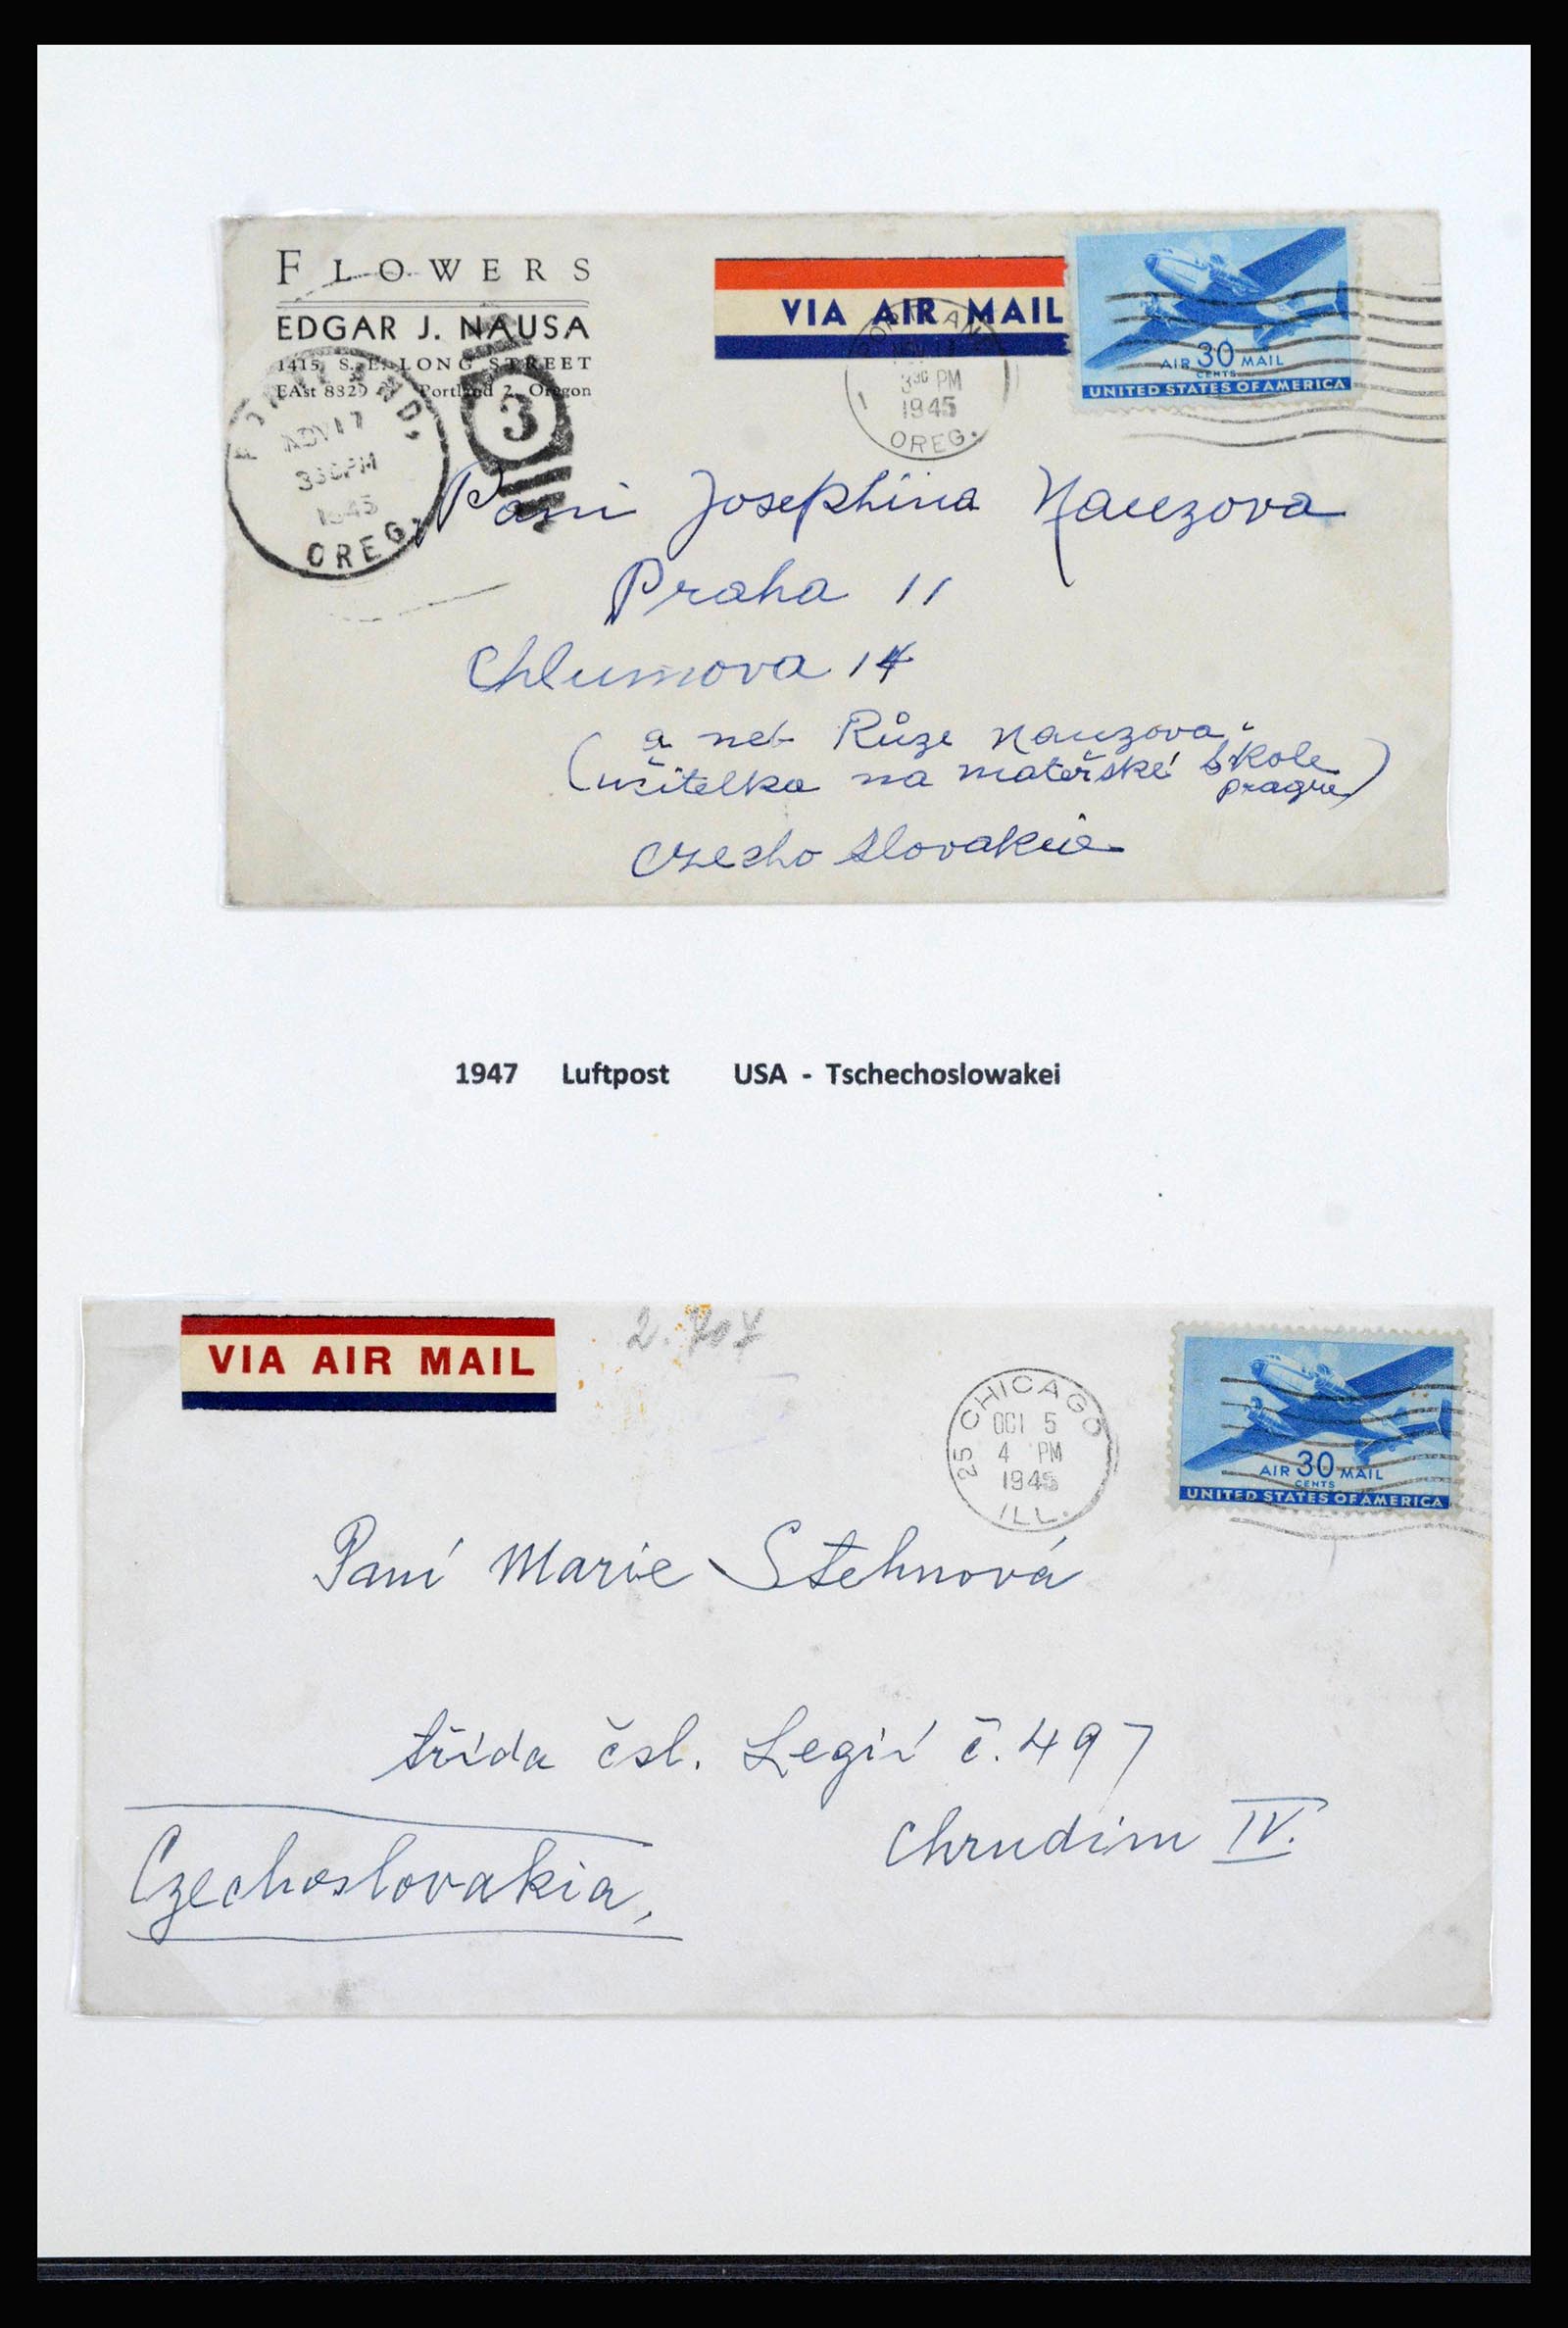 FLOWERS
EDGAR J. NAUSA
1415 S. E. LONG STREET
EAst 8829 Portland 2, Oregon
PORTLAND,
NOV 17
330PM
1945
OREG.
3
VIA AIR MAIL
PORTLAND
330 PM
1945
OREG.
AIR 30 MAIL
CENTS
UNITED STATES OF AMERICA
Pani Josephina Nauzova
Praha 11
Chlumova 14
(a neb Růze Nauzova
učitelka na mateřské škole
prague)
Czecho Slovakia
1947 Luftpost USA - Tschechoslowakei
VIA AIR MAIL
25 CHICAGO
OCT 5
4 PM
1945
ILL.
AIR 30 MAIL
CENTS
UNITED STATES OF AMERICA
Paní Marie Stehnová
třída čsl. Legií č. 497
Chrudim IV.
Czechoslovakia,